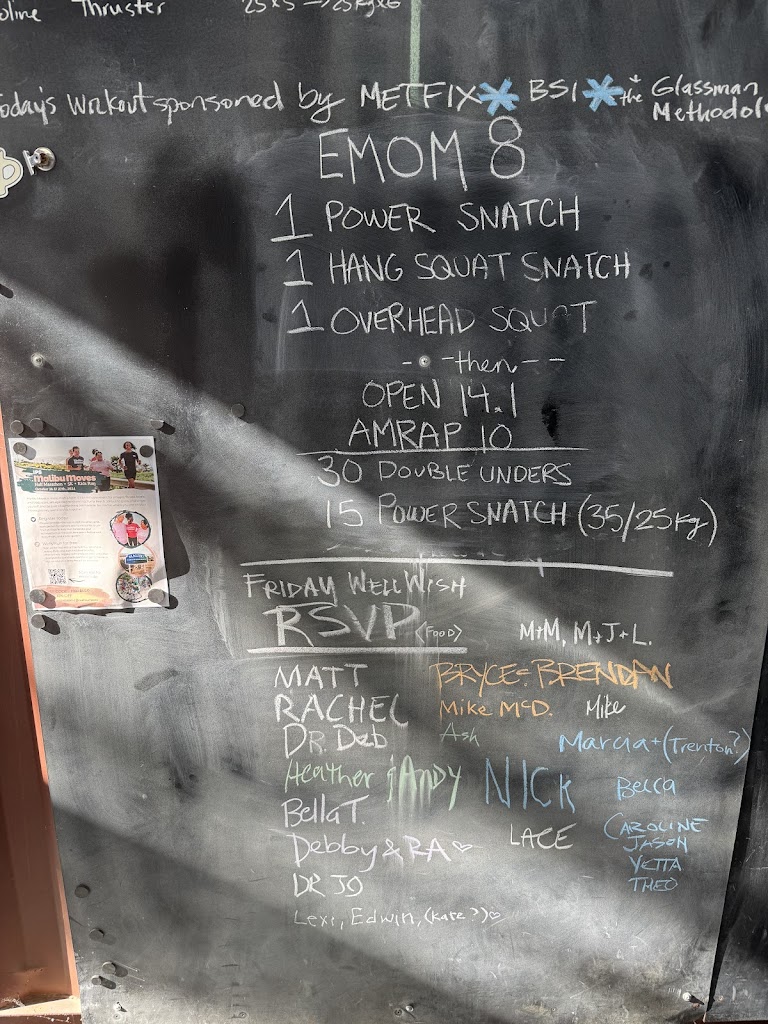 oline Thruster 25x5 → 25kgx6
Today's Workout sponsored by METFIX * BSI * the Glassman Methodolo
EMOM 8
1 POWER SNATCH
1 HANG SQUAT SNATCH
1 OVERHEAD SQUAT
- - - then - -
OPEN 14.1
AMRAP 10
30 DOUBLE UNDERS
15 POWER SNATCH (35/25kg)
FRIDAY WELL WISH
RSVP <FOOD> M+M, M+J+L.
MATT BRYCE = BRENDAN
RACHEL Mike McD. Mike
DR. Deb Ash Marcia + (Trenton?)
Heather jANDY NICK Becca
Bella T.
LACE CAROLINE
JASON
Debby & RA ♡
YETTA
DR JO THEO
Lexi, Edwin, (Kate?) ♡
Malibu Moves
Half Marathon + 5K + Kids Run